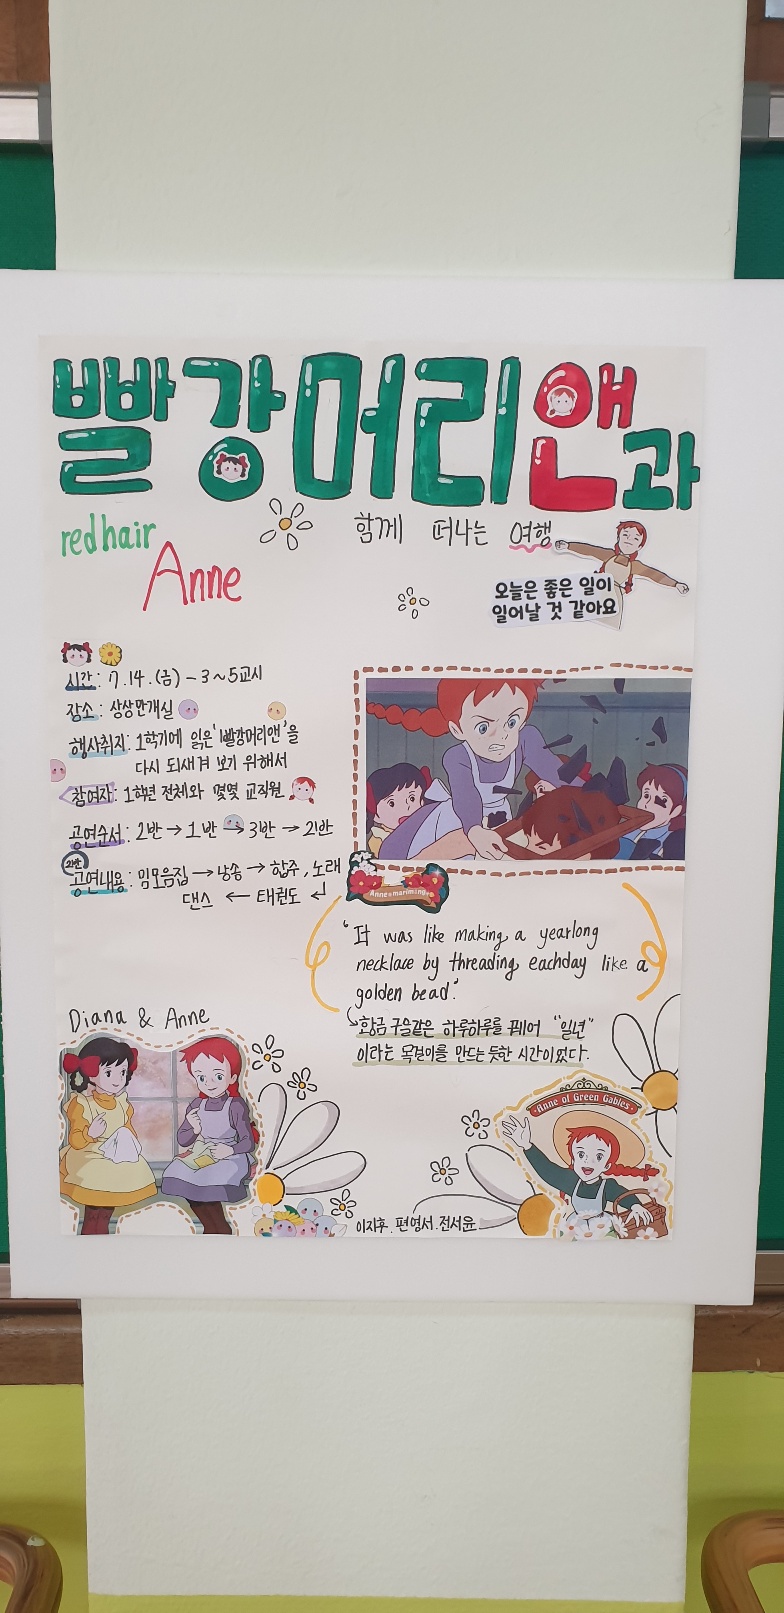 빨강머리앤과
함께 떠나는 여행
red hair
Anne
오늘은 좋은 일이
일어날 것 같아요
시간: 7.14.(금) - 3~5교시
장소: 상상만개실
행사취지: 1학기에 읽은 '빨강머리앤'을
다시 되새겨 보기 위해서
참여자: 1학년 전체와 몇몇 교직원
공연순서: 2반 → 1반 → 3반 → 2반
2반
공연내용: 밈모음집 → 낭송 → 합주, 노래
댄스 ← 태권도 ↲
'It was like making a yearlong
necklace by threading eachday like a
golden bead.'
황금 구슬같은 하루하루를 꿰어 "일년"
이라는 목걸이를 만드는 듯한 시간이었다.
Diana & Anne
Anne of Green Gables
이지후. 편영서. 전서윤